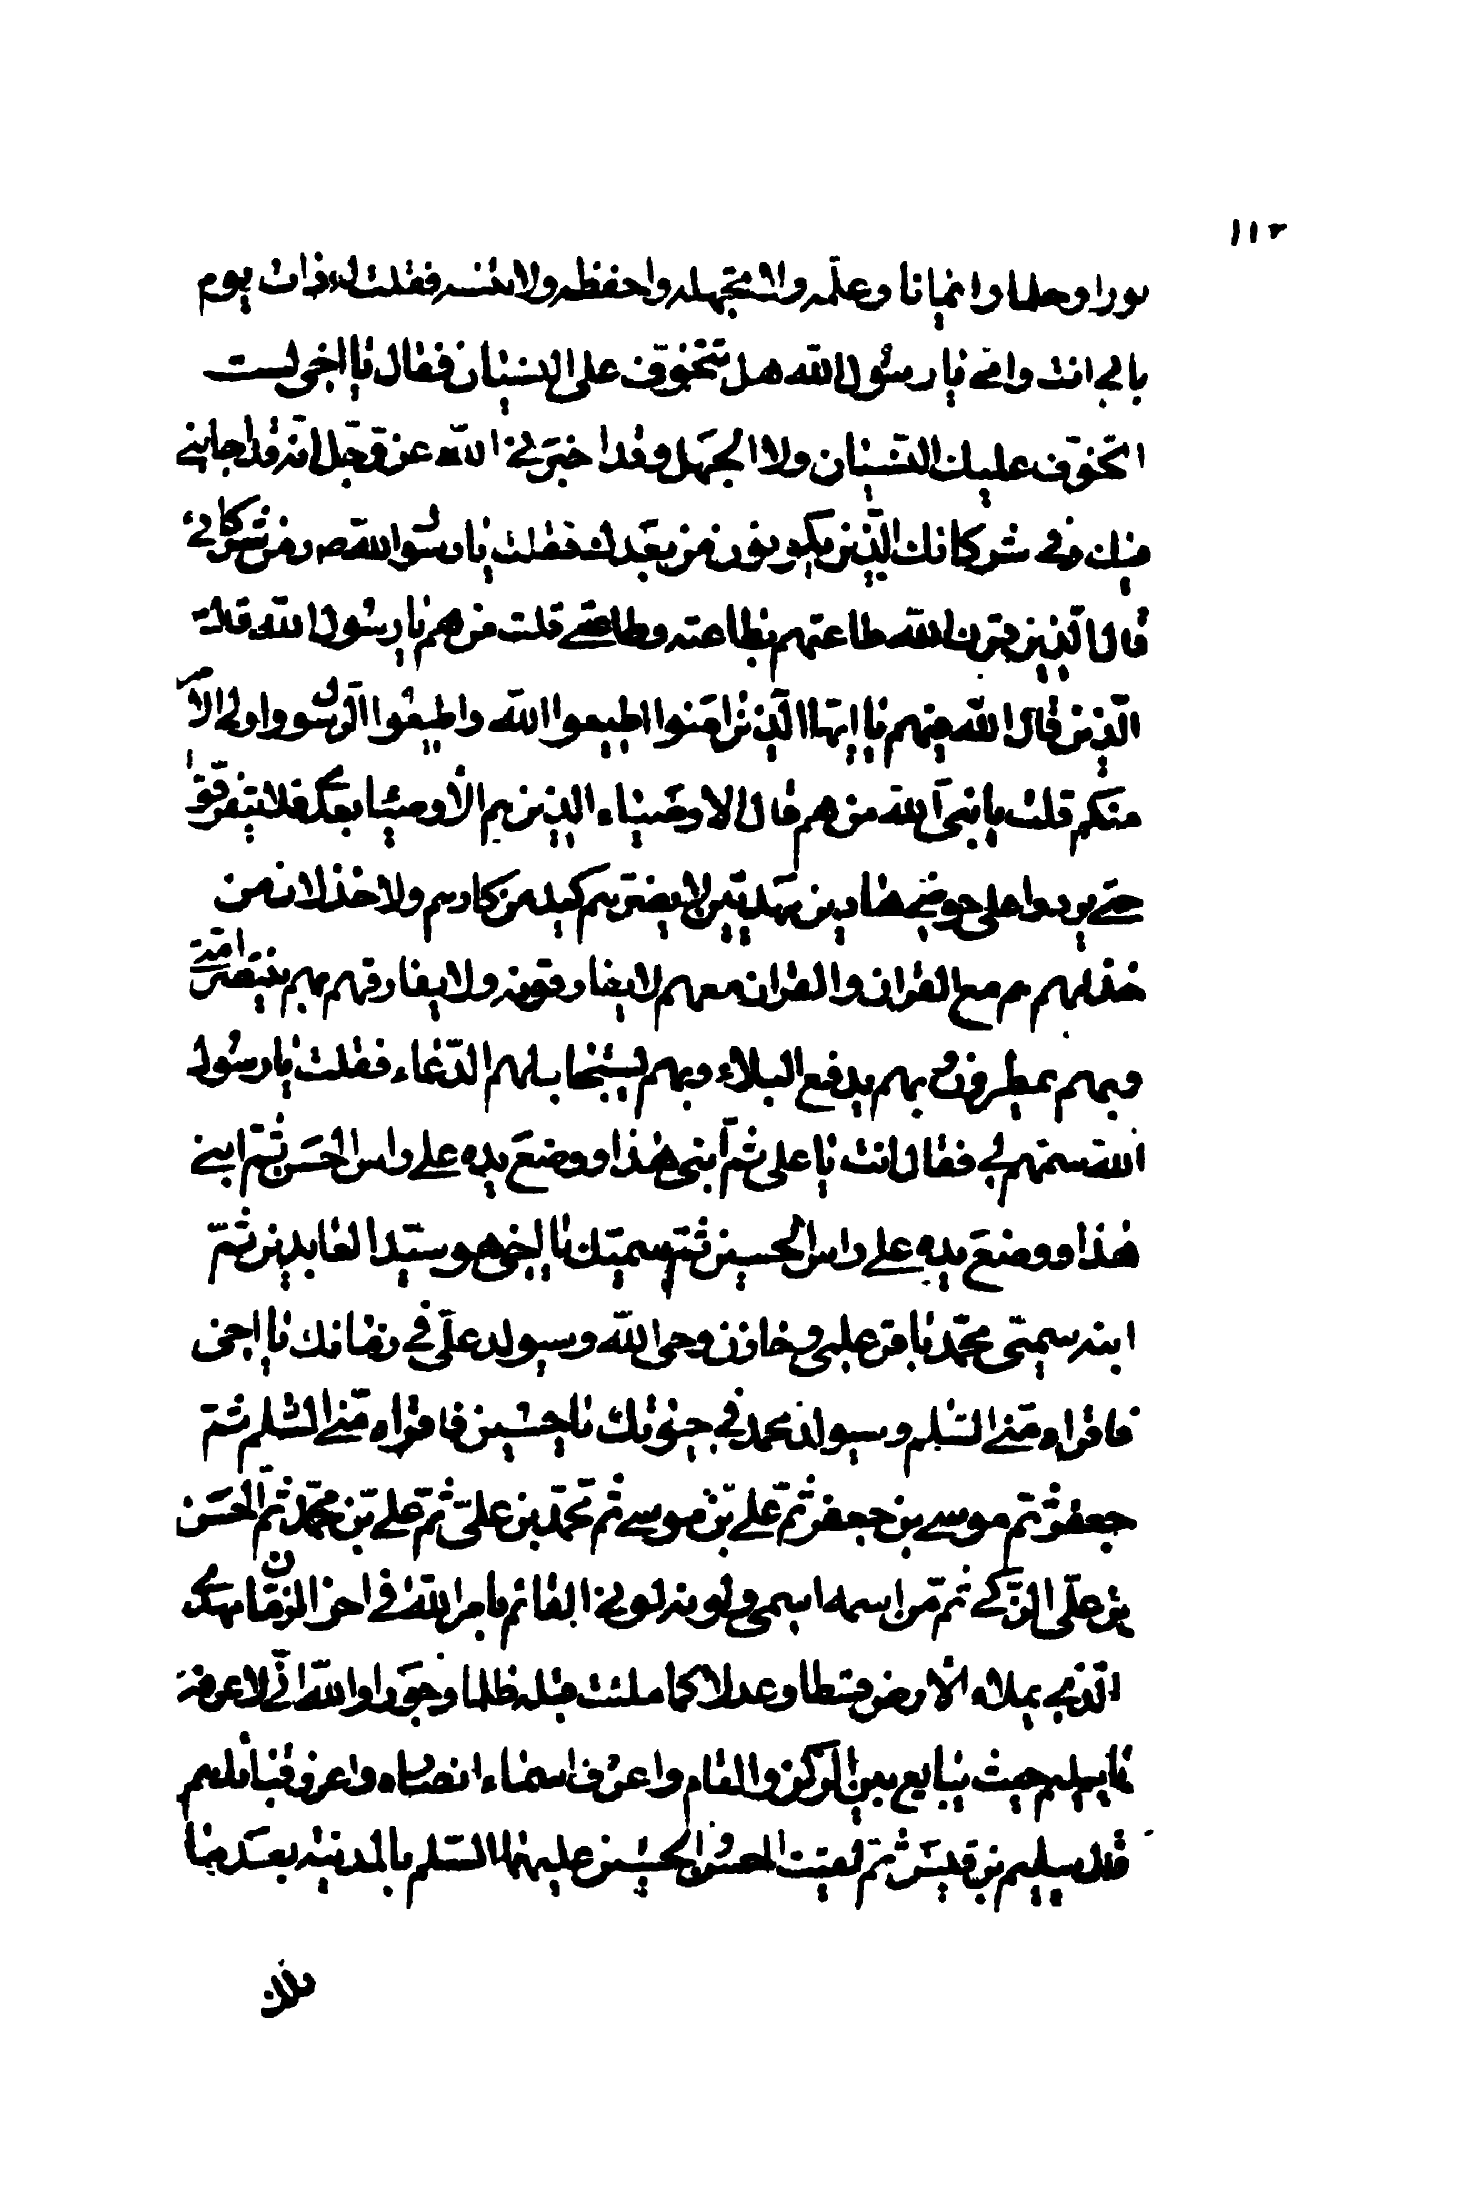 ١١٢
نورا وحلما وايمانا وعلمه ولا تجهله واحفظه ولا تنسه فقلت له ذات يوم
بابي انت وامي يا رسول الله هل تتخوف على النسيان فقال يا اخي لست
اتخوف عليك النسيان ولا الجهل وقد اخبرني الله عز وجل انه قد اجابني
فيك وفي شركائك الذين يكونون من بعدك فقلت يا رسول الله ص ومن شركائي
قال الذين قرن الله طاعتهم بطاعته وطاعتي قلت من هم يا رسول الله قال
الذين قال الله فيهم يا ايها الذين امنوا اطيعوا الله واطيعوا الرسول واولي الامر
منكم قلت يا نبي الله من هم قال الاوصياء الذين هم الاوصياء بعدي فلا يتفرقوا
حتى يردوا على حوضي هادين مهديين لا يضرهم كيد من كادهم ولا خذلان من
خذلهم هم مع القران والقران معهم لا يفارقونه ولا يفارقهم بهم ينتصر امتي
وبهم يمطرون بهم يدفع البلاء وبهم يستجاب لهم الدعاء فقلت يا رسول
الله سمهم لي فقال انت يا علي ثم ابني هذا ووضع يده على راس الحسن ثم ابني
هذا ووضع يده على راس الحسين ثم سميك يا اخي هو سيد العابدين ثم
ابنه سميي محمد باقر علمي وخازن وحي الله وسيولد علي في زمانك يا اخي
فاقراه مني السلم وسيولد محمد في حيوتك يا حسين فاقراه مني السلم ثم
جعفر ثم موسى بن جعفر ثم علي بن موسى ثم محمد بن علي ثم علي بن محمد ثم الحسن
بن علي الزكي ثم من اسمه اسمي ولونه لوني القائم بامر الله في اخر الزمان مهدي
الذي يملاء الارض قسطا وعدلا كما ملئت قبله ظلما وجورا والله اني لاعرفه
يا سليم حيث يبايع بين الركن والمقام واعرف اسماء انصاره واعرف قبائلهم
قال سليم بن قيس ثم لقيت الحسن والحسين عليهما السلم بالمدينه بعد ما
ملك